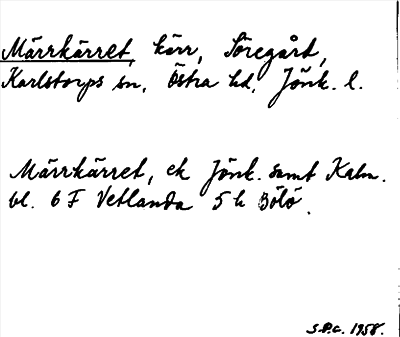 Märrkärret, kärr, Söregård,
Karlstorps sn, Östra hd, Jönk. l.
Märrkärret, ek Jönk. samt Kalm.
bl. 6 F Vetlanda 5 h Bölö.
1958.